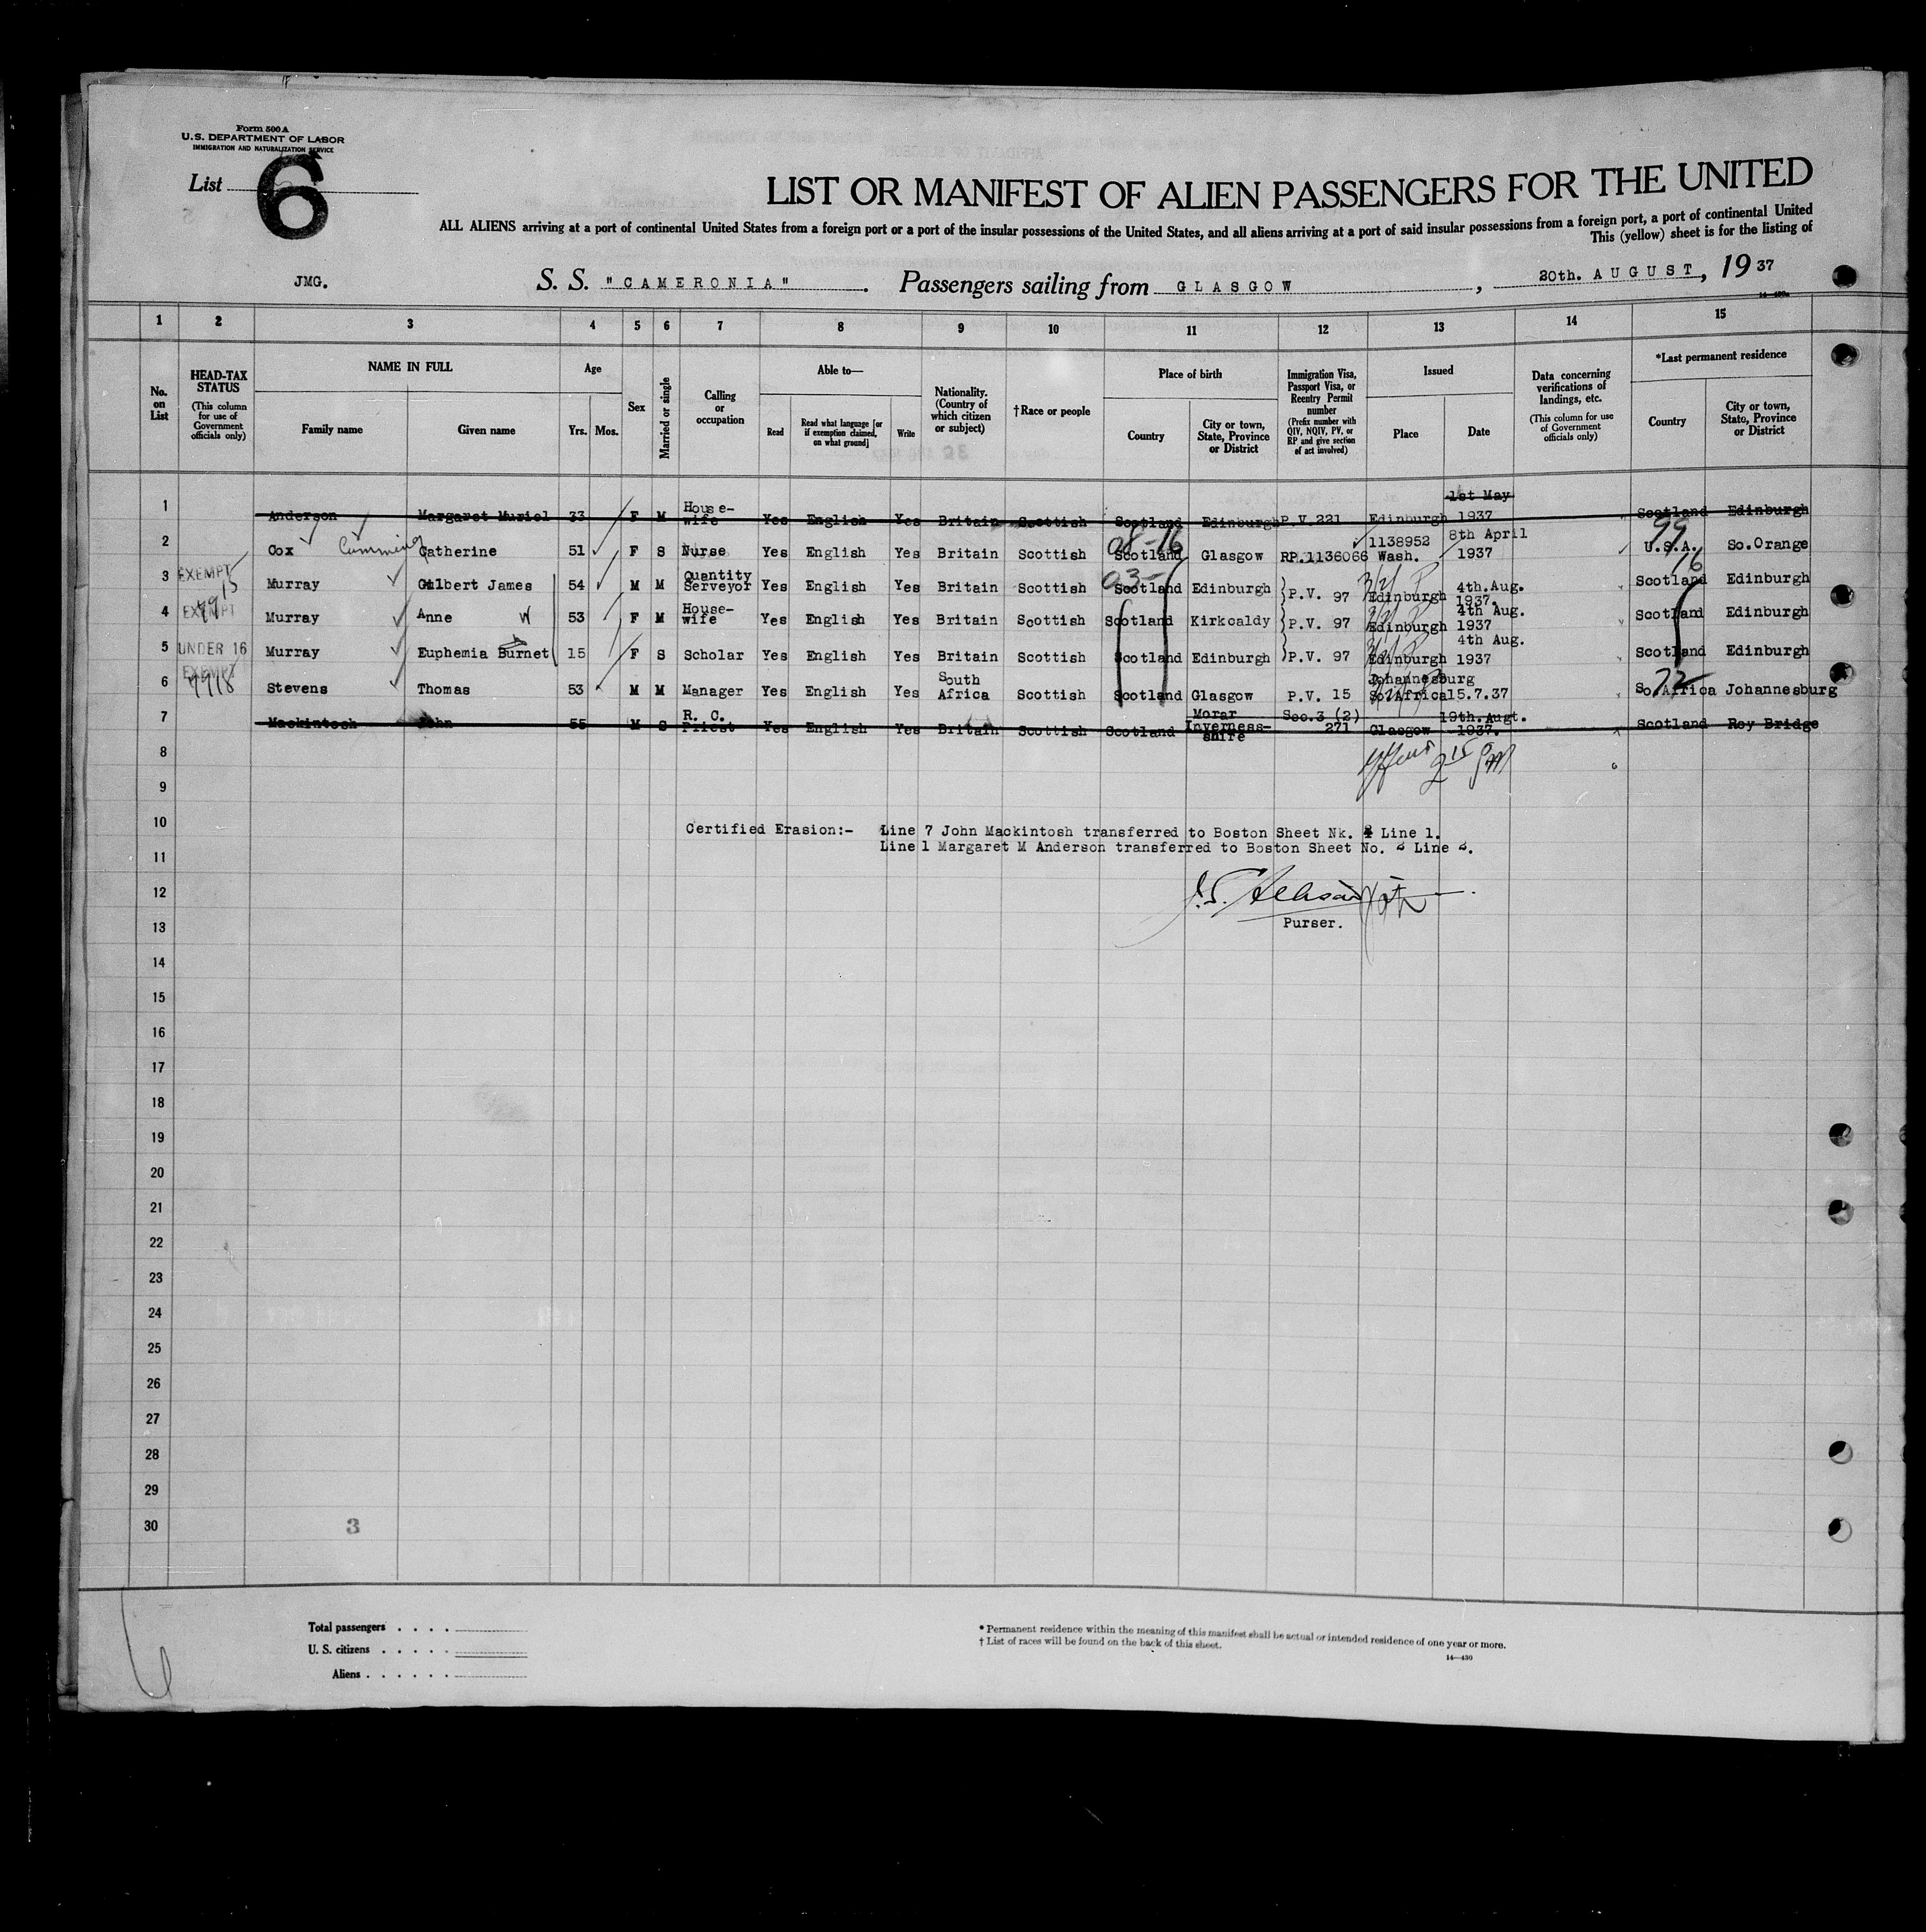 Form 500 A
U.S. DEPARTMENT OF LABOR
IMMIGRATION AND NATURALIZATION SERVICE
List 6
LIST OR MANIFEST OF ALIEN PASSENGERS FOR THE UNITED
ALL ALIENS arriving at a port of continental United States from a foreign port or a port of the insular possessions of the United States, and all aliens arriving at a port of said insular possessions from a foreign port, a port of continental United
This (yellow) sheet is for the listing of
JMG. S. S. "CAMERONIA" Passengers sailing from GLASGOW, 20th. AUGUST, 1937
1 2 3 4 5 6 7 8 9 10 11 12 13 14 15
No. on List
HEAD-TAX STATUS (This column for use of Government officials only)
NAME IN FULL
Family name Given name
Age
Yrs. Mos.
Sex
Married or single
Calling or occupation
Able to—
Read Read what language [or if exemption claimed, on what ground] Write
Nationality. (Country of which citizen or subject)
†Race or people
Place of birth
Country City or town, State, Province or District
Immigration Visa, Passport Visa, or Reentry Permit number (Prefix number with QIV, NQIV, PV, or RP and give section of act involved)
Issued
Place Date
Data concerning verifications of landings, etc. (This column for use of Government officials only)
*Last permanent residence
Country City or town, State, Province or District
1 Anderson Margaret Muriel 33 F M House-wife Yes English Yes Britain Scottish Scotland Edinburgh P.V.221 Edinburgh 1st May 1937 Scotland Edinburgh
2 Cox Cumming Catherine 51 F S Nurse Yes English Yes Britain Scottish 08-16 Scotland Glasgow RP.1136066 1138952 Wash. 8th April 1937 99 U.S.A. So.Orange
3 EXEMPT Murray Gilbert James 54 M M Quantity Serveyor Yes English Yes Britain Scottish 03- Scotland Edinburgh P.V. 97 Edinburgh 4th.Aug. 1937. 16 Scotland Edinburgh
4 EXEMPT Murray Anne W 53 F M House-wife Yes English Yes Britain Scottish Scotland Kirkcaldy P.V. 97 Edinburgh 4th Aug. 1937 Scotland Edinburgh
5 UNDER 16 Murray Euphemia Burnet 15 F S Scholar Yes English Yes Britain Scottish Scotland Edinburgh P.V. 97 Edinburgh 4th Aug. 1937 Scotland Edinburgh
6 EXEMPT Stevens Thomas 53 M M Manager Yes English Yes South Africa Scottish Scotland Glasgow P.V. 15 Johannesburg So.Africa 15.7.37 72 So.Africa Johannesburg
7 Mackintosh John 55 M S R. C. Priest Yes English Yes Britain Scottish Scotland Morar Inverness-shire Sec.3 (2) 271 Glasgow 19th.Augt. 1937. Scotland Roy Bridge
8
9
10 Certified Erasion:- Line 7 John Mackintosh transferred to Boston Sheet Nk. Line 1.
11 Line 1 Margaret M Anderson transferred to Boston Sheet No. 2 Line 2.
12
13 Purser.
14
15
16
17
18
19
20
21
22
23
24
25
26
27
28
29
30
3
Total passengers . . . .
U. S. citizens . . . . .
Aliens . . . . . .
* Permanent residence within the meaning of this manifest shall be actual or intended residence of one year or more.
† List of races will be found on the back of this sheet.
14—430